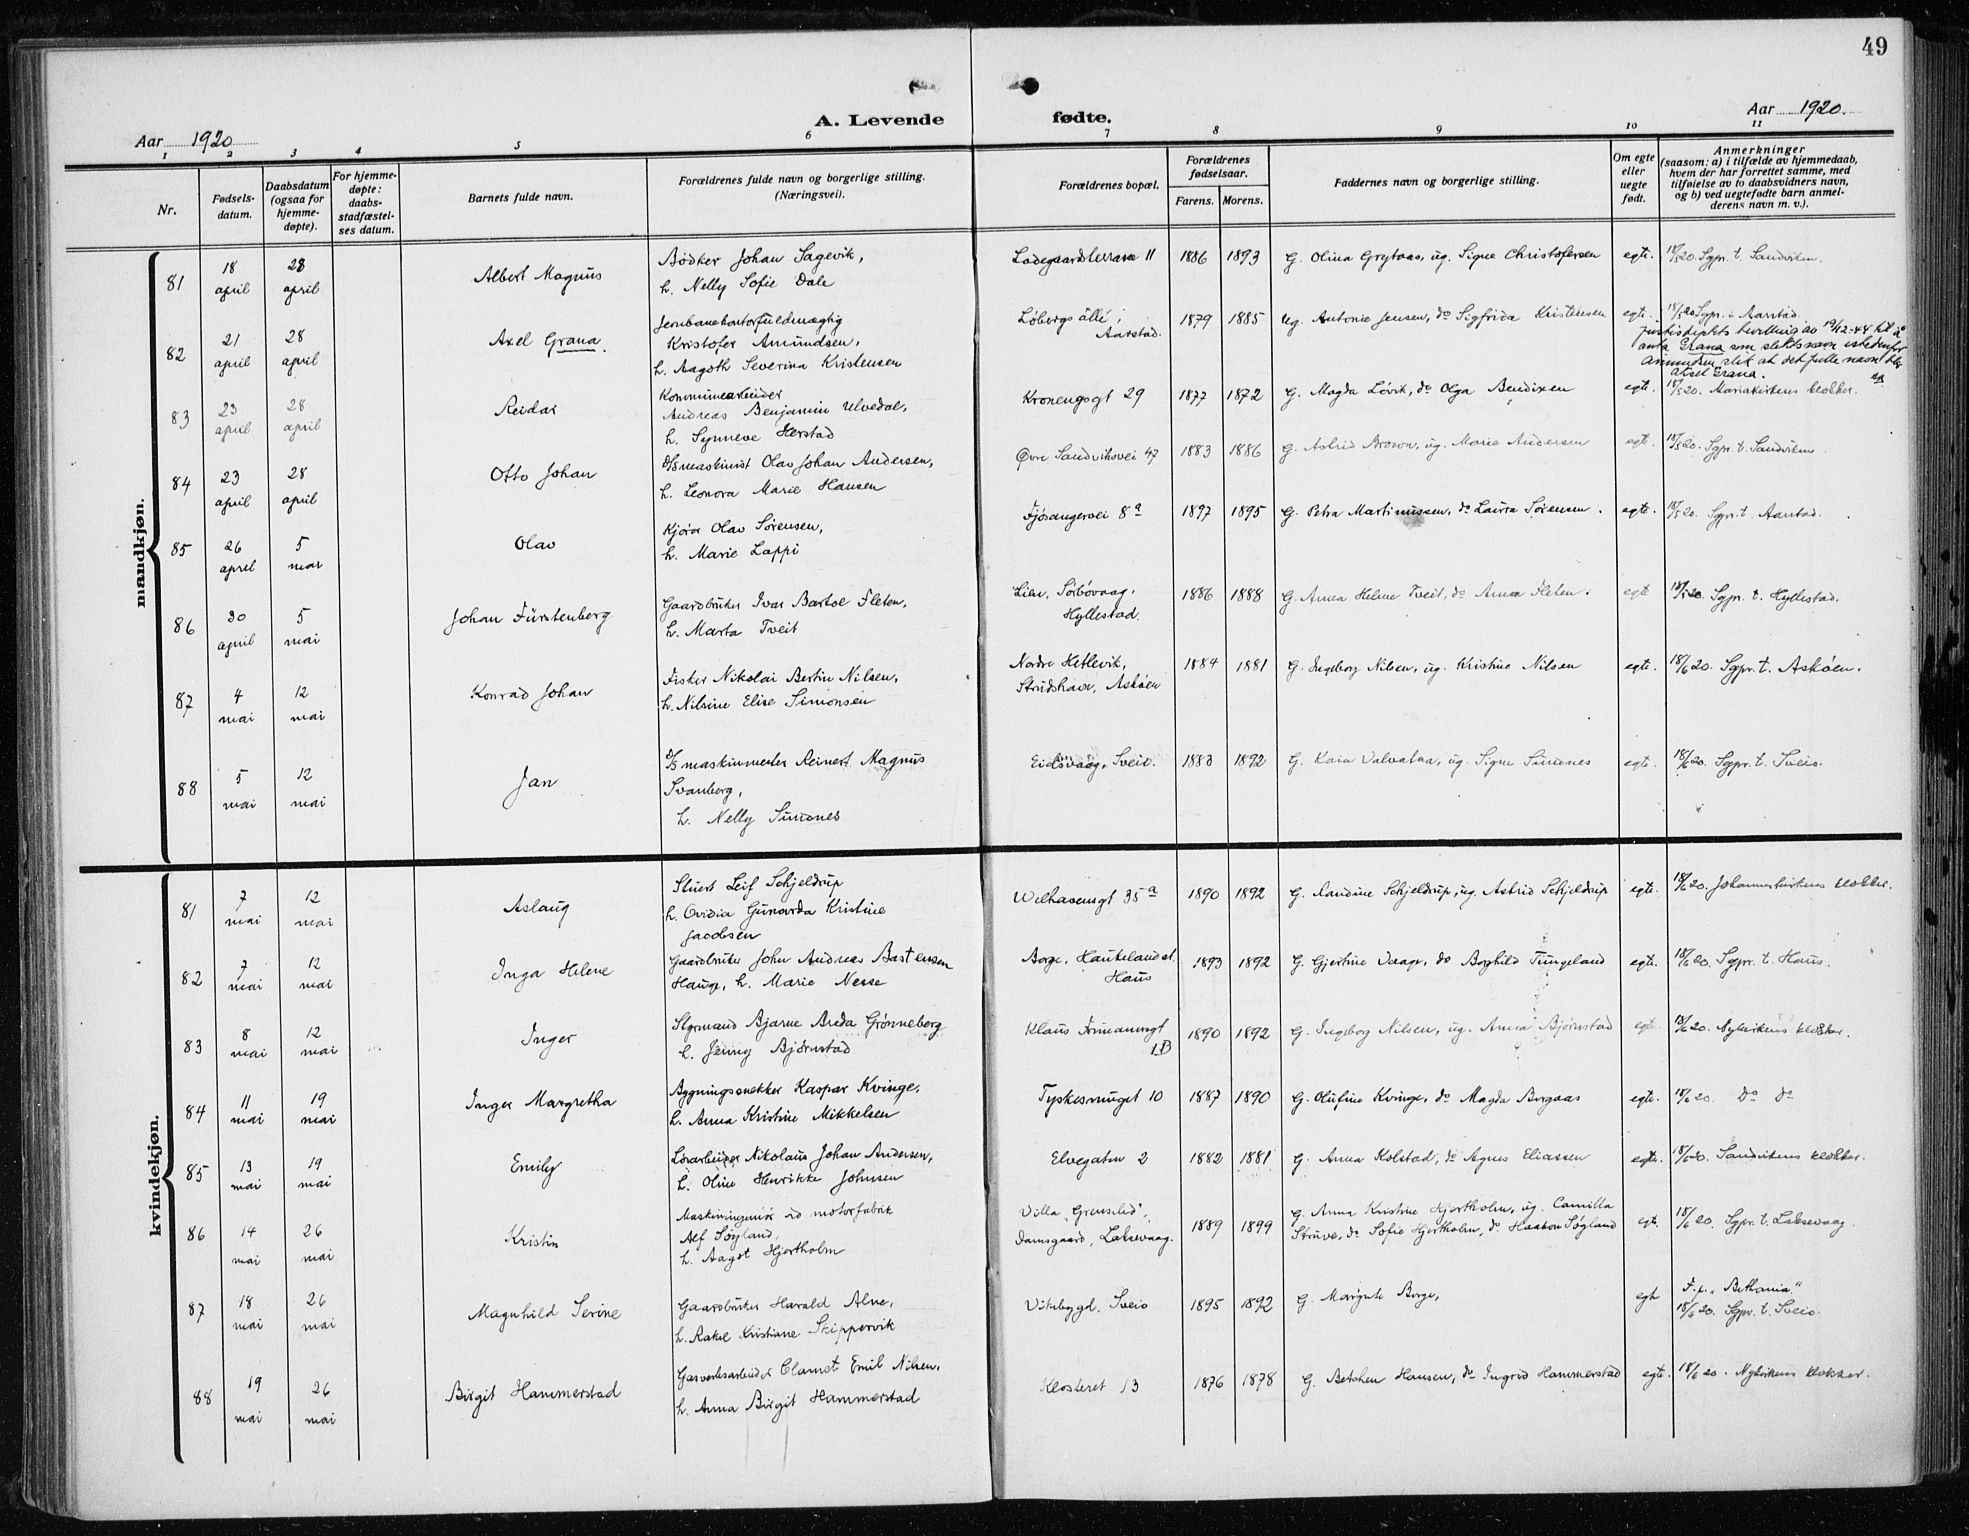 49
Aar 1920
A. Levende fødte.
Aar 1920.
1 2 3 4 5 6 7 8 9 10 11
Nr.
Fødsels-
datum.
Daabsdatum
(ogsaa for
hjemme-
døpte).
For hjemme-
døpte:
daabs-
stadfæstel-
ses datum.
Barnets fulde navn.
Forældrenes fulde navn og borgerlige stilling.
(Næringsvei).
Forældrenes bopæl.
Forældrenes
fødselsaar.
Farens. Morens.
Faddernes navn og borgerlige stilling.
Om egte
eller
uegte
født.
Anmerkninger
(saasom: a) i tilfælde av hjemmedaab,
hvem der har forrettet samme, med
tilføielse av to daabsvidners navn,
og b) ved uegtefødte barn anmel-
derens navn m. v.).
mandkjøn.
81 18 april 28 april Albert Magnus
Bødker Johan Sagevik,
h. Nelly Sofie Dale
Ladegaardsterrasse 11 1886 1893 G. Olina Grytaas, ug. Signe Christofersen egte. 18/5 20. Sgpr. t. Sandviken.
82 21 april 28 april Axel Grana.
Jernbanekontorfuldmægtig
Kristofer Amundsen,
h. Aagoth Severina Kristensen
Løbergs allé, Aarstad. 1879 1885 Ug. Antonie Jensen, do Sigfrida Kristensen egte. 18/5 20 Sgpr. i Aarstad.
Justisdepts bevilling av 19/12-44 til å
anta Grana som slektsnavn istedenfor
Amundsen slik at det fulle navn blir
Aksel Grana.
83 23 april 28 april Reidar
Kommunearbeider
Andreas Benjamin Ulvedal,
h. Synneve Herstad
Kronengsgt 29 1877 1872 G. Magda Løvik, do Olga Bendixen egte. 18/5 20. Mariakirkens klokker.
84 23 april 28 april Otto Johan
D/S maskinist Olav Johan Andersen,
h. Leonora Marie Hansen
Øvre Sandviksvei 47 1883 1886 G. Astrid Brown, ug. Marie Andersen egte. 18/5 20. Sgpr. t. Sandviken.
85 26 april 5 mai Olav
Kjører Olav Sørensen,
h. Marie Lappi
Fjøsangervei 8a 1897 1895 G. Petra Martinussen, do Laura Sørensen. egte. 18/5 20. Sgpr. t. Aarstad.
86 30 april 5 mai Johan Fürstenberg
Gaardbruker Ivar Bartol Fleten,
h. Marta Tveit
Lien, Sørbøvaag, Hyllestad. 1886 1888 G. Anna Helene Tveit, do Anna Fleten. egte 18/5 20. Sgpr. t. Hyllestad.
87 4 mai 12 mai Konrad Johan
Fisker Nikolai Bertin Nilsen,
h. Nilsine Elise Simonsen
Nordre Hetlevik,
Strudshavn, Askøen 1884 1881 G. Ingeborg Nilsen, ug. Kristine Nilsen egte. 18/6 20. Sgpr. t. Askøen.
88 5 mai 12 mai Jan
D/S maskinmester Reinert Magnus
Svanberg,
h. Nelly Simones
Eidsvaag, Sveio. 1883 1892 G. Kaia Valvatna, ug. Signe Simones egte. 18/6 20. Sgpr. t. Sveio.
kvindekjøn.
81 7 mai 12 mai Aslaug
Stuert Leif Schjeldrup
h. Ovidia Gunarda Kristine
Jacobsen
Welhavensgt 35a 1890 1892 G. Randine Schjeldrup, ug. Astrid Schjeldrup egte. 18/6 20. Johanneskirkens klokker.
82 7 mai 12 mai Inga Helene
Gaardbruker John Andreas Bastensen
Hauge, h. Marie Nesse
Borge, Haukelandst. Haus 1893 1892 G. Gjertine Vaage, do Borghild Tungeland egte. 18/6 20. Sgpr. t. Haus.
83 8 mai 12 mai Inger
Styrmand Bjarne Breda Grønneberg
h. Jenny Bjørnstad
Klaus 1B 1890 1892 G. Ingeborg Nilsen, ug. Anna Bjørnstad egte. 18/6 20. Nykirkens klokker.
84 11 mai 19 mai Inger Margretha
Bygningssnekker Kaspar Kvinge,
h. Anna Kristine Mikkelsen
Tyskesmuget 10 1887 1890 G. Olufine Kvinge, do Magda Borgaas egte. 18/6 20. Do Do
85 13 mai 19 mai Emily
Løsarbeider Nikolaus Johan Andersen,
h. Oline Henrikke Johnsen
Elvegaten 2 1882 1881 G. Anna Kolstad, do Agnes Eliassen egte. 18/6 20. Sandvikens klokker.
86 14 mai 26 mai Kristin
Maskiningeniør ved motorfabrik
Alf Søyland,
h. Aagot Hjortholm
Villa "Grenslid",
Damsgaard, Laksevaag. 1889 1899 G. Anna Kristine Hjortholm, ug. Camilla
Struve, do Sofie Hjortholm, do Haakon Søyland egte. 18/6 20. Sgpr. t. Laksevaag.
87 18 mai 26 mai Magnhild Serine
Gaardbruker Harald Alne,
h. Rakel Kristiane Skippervik
Vikebygd, Sveio 1895 1892 G. Margrete Borge, egte F. p. "Bethania"
18/6 20. Sgpr. t. Sveio.
88 19 mai 26 mai Birgit Hammerstad
Gasverksarbeider Clamet Emil Nilsen,
h. Anna Birgit Hammerstad
Klosteret 13 1876 1878 G. Betchen Hansen, do Ingrid Hammerstad egte. 18/6 20. Nykirkens klokker.